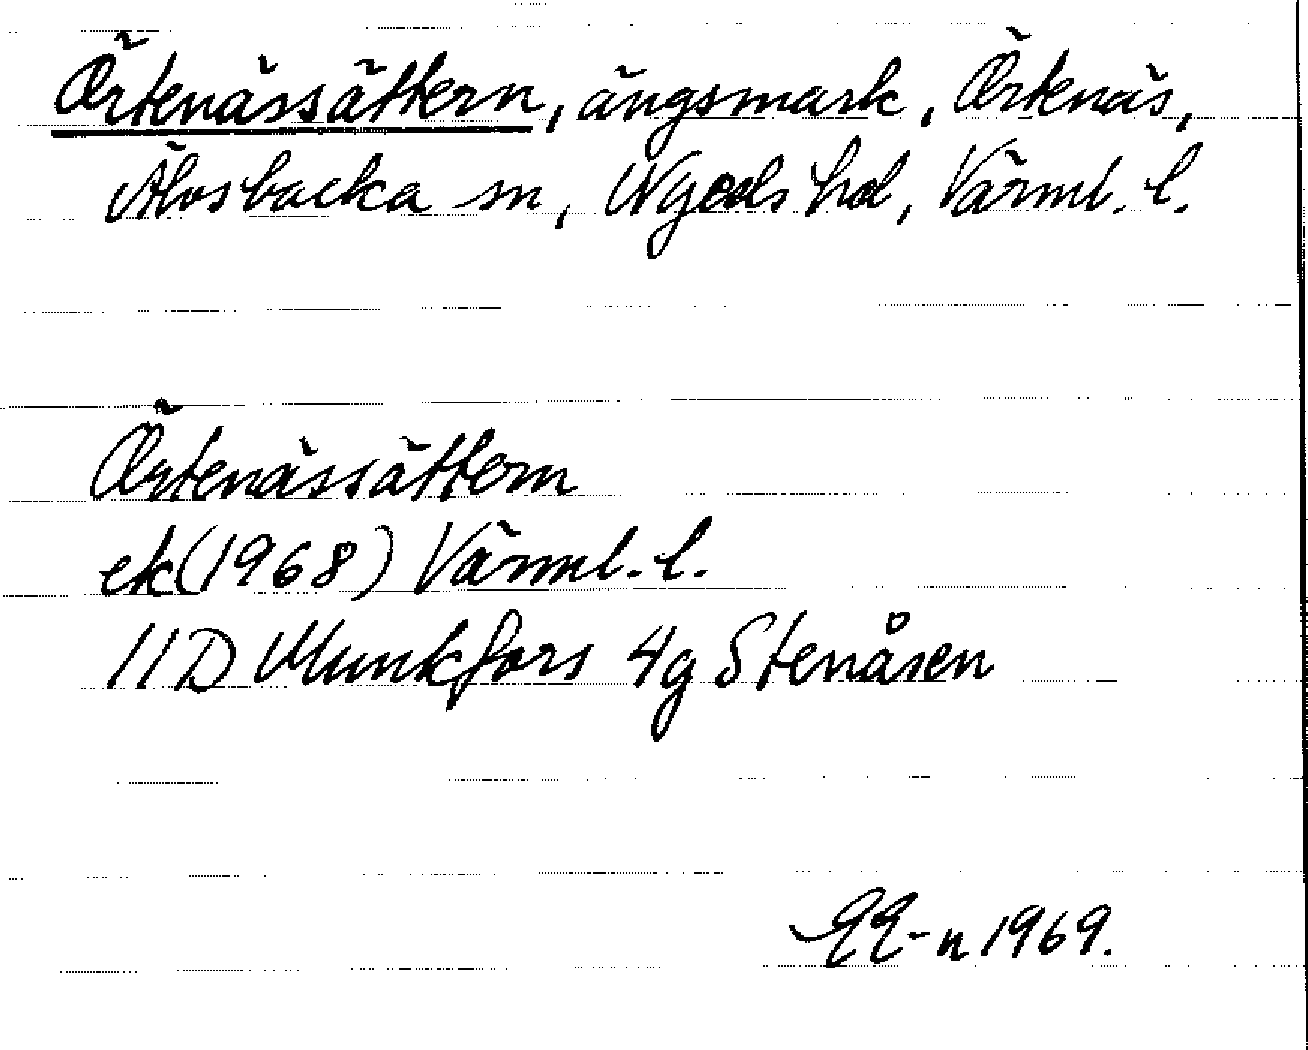 Örtenässättern, ängsmark, Örtenäs,
Älvsbacka sn, Nyeds hd, Värml. l.
Örtenässättern
ek (1968) Värml. l.
11D Munkfors 4g Stenåsen
1969.